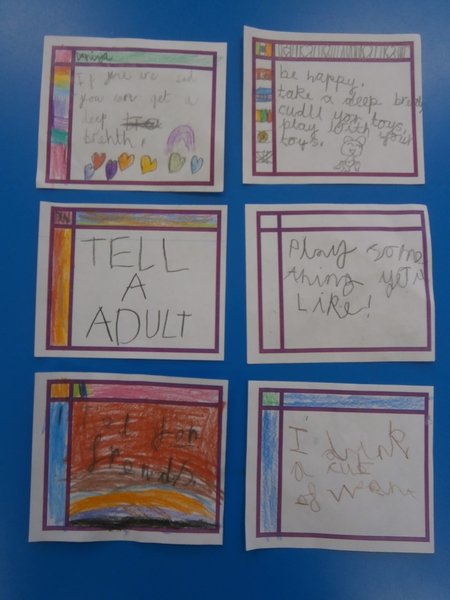 If you're sad
you can get a
deep
brehth.
be happy,
take a deep breth,
cudll yor toys,
play with your
toys.
TELL
A
ADULT
Play some
thing
LIKE!
for
frends.
I drink
a
of